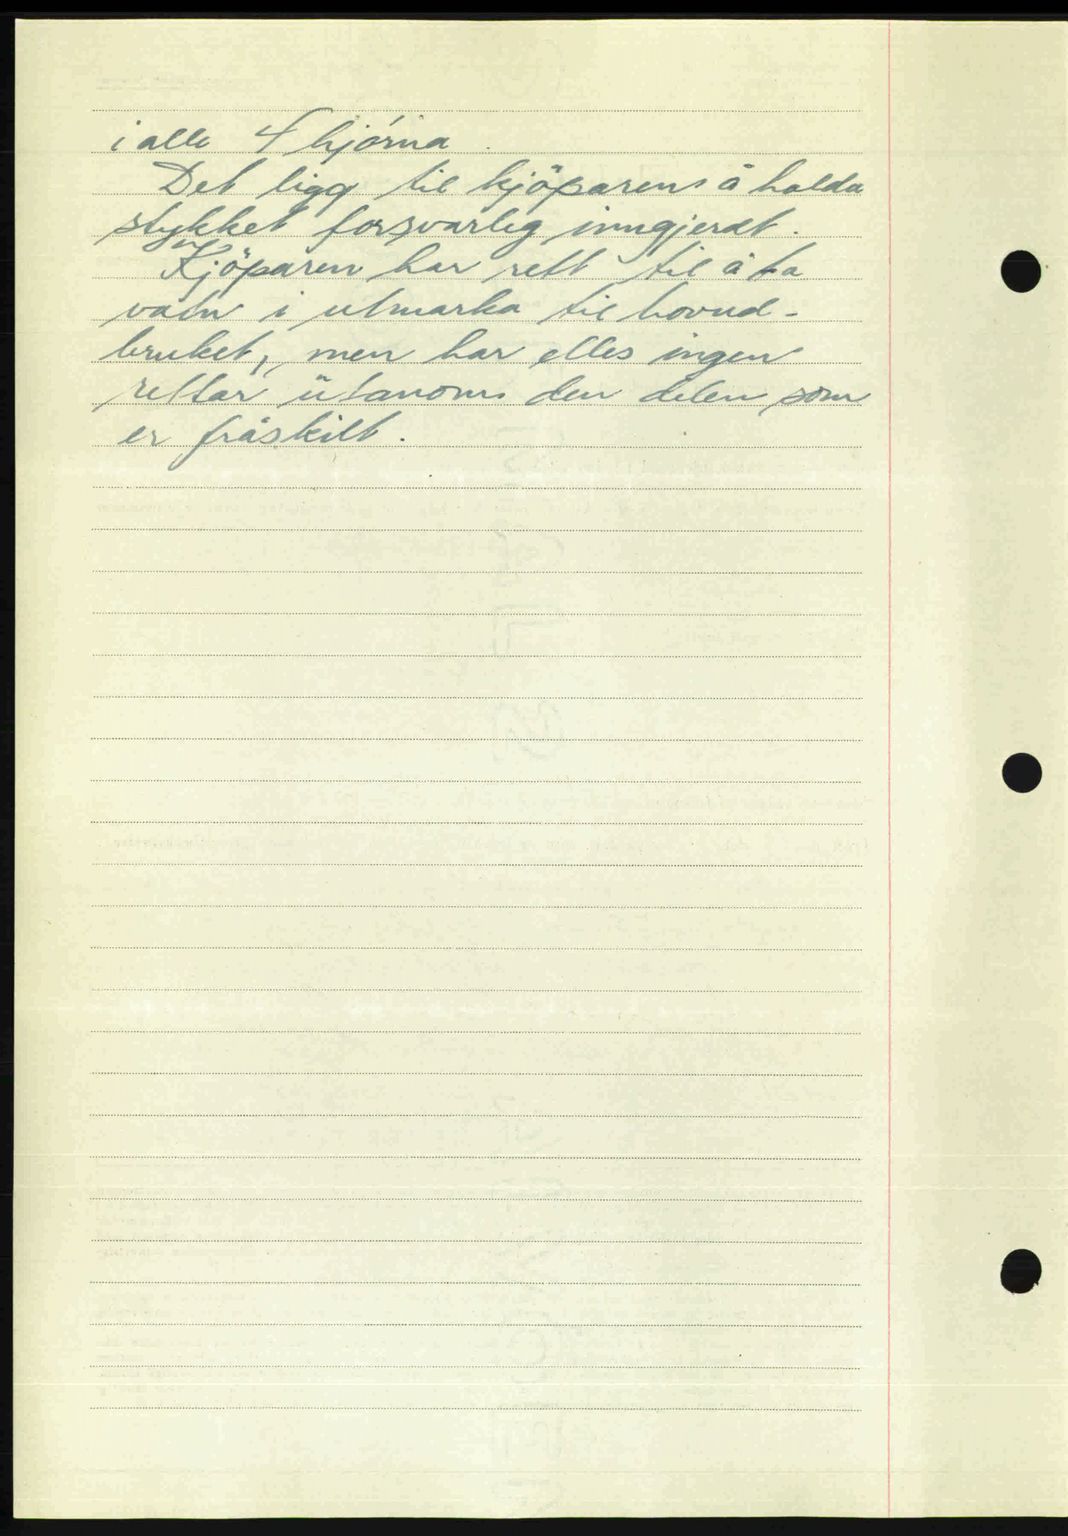 i alle 4 hjörna.
Det ligg til kjöparens å halda
stykket forsvarleg inngjerdt.
Kjöparen har rett til å ta
vatn i utmarka til hovud-
bruket, men har elles ingen
rettar utanom den delen som
er fråskilt.